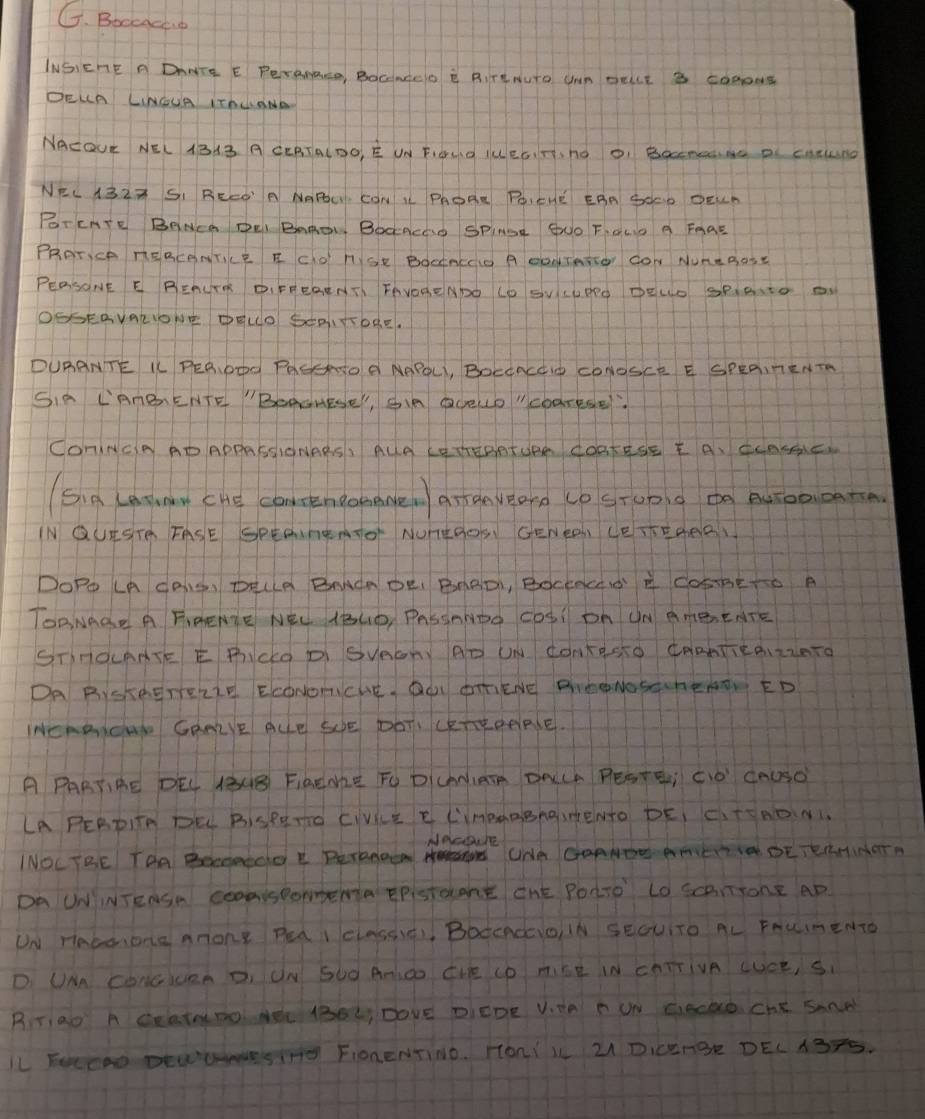 G. Boccaccio
INSIEME A DANTE E PETRARCA, BOCCACCIO È RITENUTO UNA DELLE 3 CORONE
DELLA LINGUA ITALIANA
NACQUE NEL 1313 A CERTALDO, È UN FIGLIO ILLEGITTIMO DI BOCCACCINO DI CHELLINO
NEL 1327 SI RECÒ A NAPOLI CON IL PADRE POICHÉ ERA SOCIO DELLA
POTENTE BANCA DEI BARDI. BOCCACCIO SPINSE SUO FIGLIO A FARE
PRATICA MERCANTILE E CIO' MISE BOCCACCIO A CONTATTO CON NUMEROSE
PERSONE E REALTÀ DIFFERENTI FAVORENDO LO SVILUPPO DELLO SPIRITO DI
OSSERVAZIONE DELLO SCRITTORE.
DURANTE IL PERIODO PASSATO A NAPOLI, BOCCACCIO CONOSCE E SPERIMENTA
SIA L'AMBIENTE "BORGHESE", SIA QUELLO "CORTESE".
COMINCIA AD APPASSIONARSI ALLA LETTERATURA CORTESE E AI CLASSICI
(SIA LATINI CHE CONTEMPORANEI) ATTRAVERSO LO STUDIO DA AUTODIDATTA.
IN QUESTA FASE SPERIMENTO' NUMEROSI GENERI LETTERARI.
DOPO LA CRISI DELLA BANCA DEI BARDI, BOCCACCIO È COSTRETTO A
TORNARE A FIRENZE NEL 1340, PASSANDO COSÌ DA UN AMBIENTE
STIMOLANTE E RICCO DI SVAGHI AD UN CONTESTO CARATTERIZZATO
DA RISTRETTEZZE ECONOMICHE. QUI OTTIENE RICONOSCIMENTI ED
INCARICHI GRAZIE ALLE SUE DOTI LETTERARIE.
A PARTIRE DEL 1348 FIRENZE FU DILANIATA DALLA PESTE; CIO' CAUSO'
LA PERDITA DEL RISPETTO CIVILE E L'IMBARBARIMENTO DEI CITTADINI.
INOLTRE TRA BOCCACCIO E PETRARCA NACQUE UNA GRANDE AMICIZIA DETERMINATA
DA UN'INTENSA CORRISPONDENZA EPISTOLARE CHE PORTO' LO SCRITTORE AD
UN MAGGIORE AMORE PER I CLASSICI. BOCCACCIO, IN SEGUITO AL FALLIMENTO
DI UNA CONGIURA DI UN SUO AMICO CHE LO MISE IN CATTIVA LUCE, SI
RITIRO A CERTALDO NEL 1362, DOVE DIEDE VITA A UN CIRCOLO CHE SARA'
IL FULCRO DELL'UMANESIMO FIORENTINO. MORÌ IL 21 DICEMBRE DEL 1375.